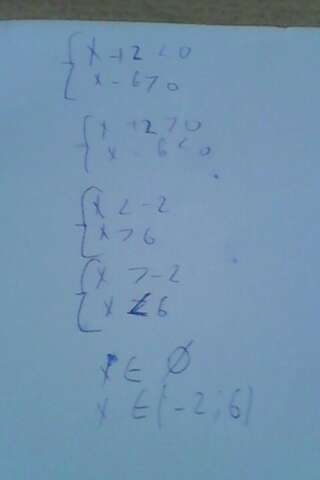 { x + 2 < 0
x - 6 > 0
{ x + 2 > 0
x - 6 < 0
{ x < -2
x > 6
{ x > -2
x < 6
x ∈ ∅
x ∈ (-2; 6)